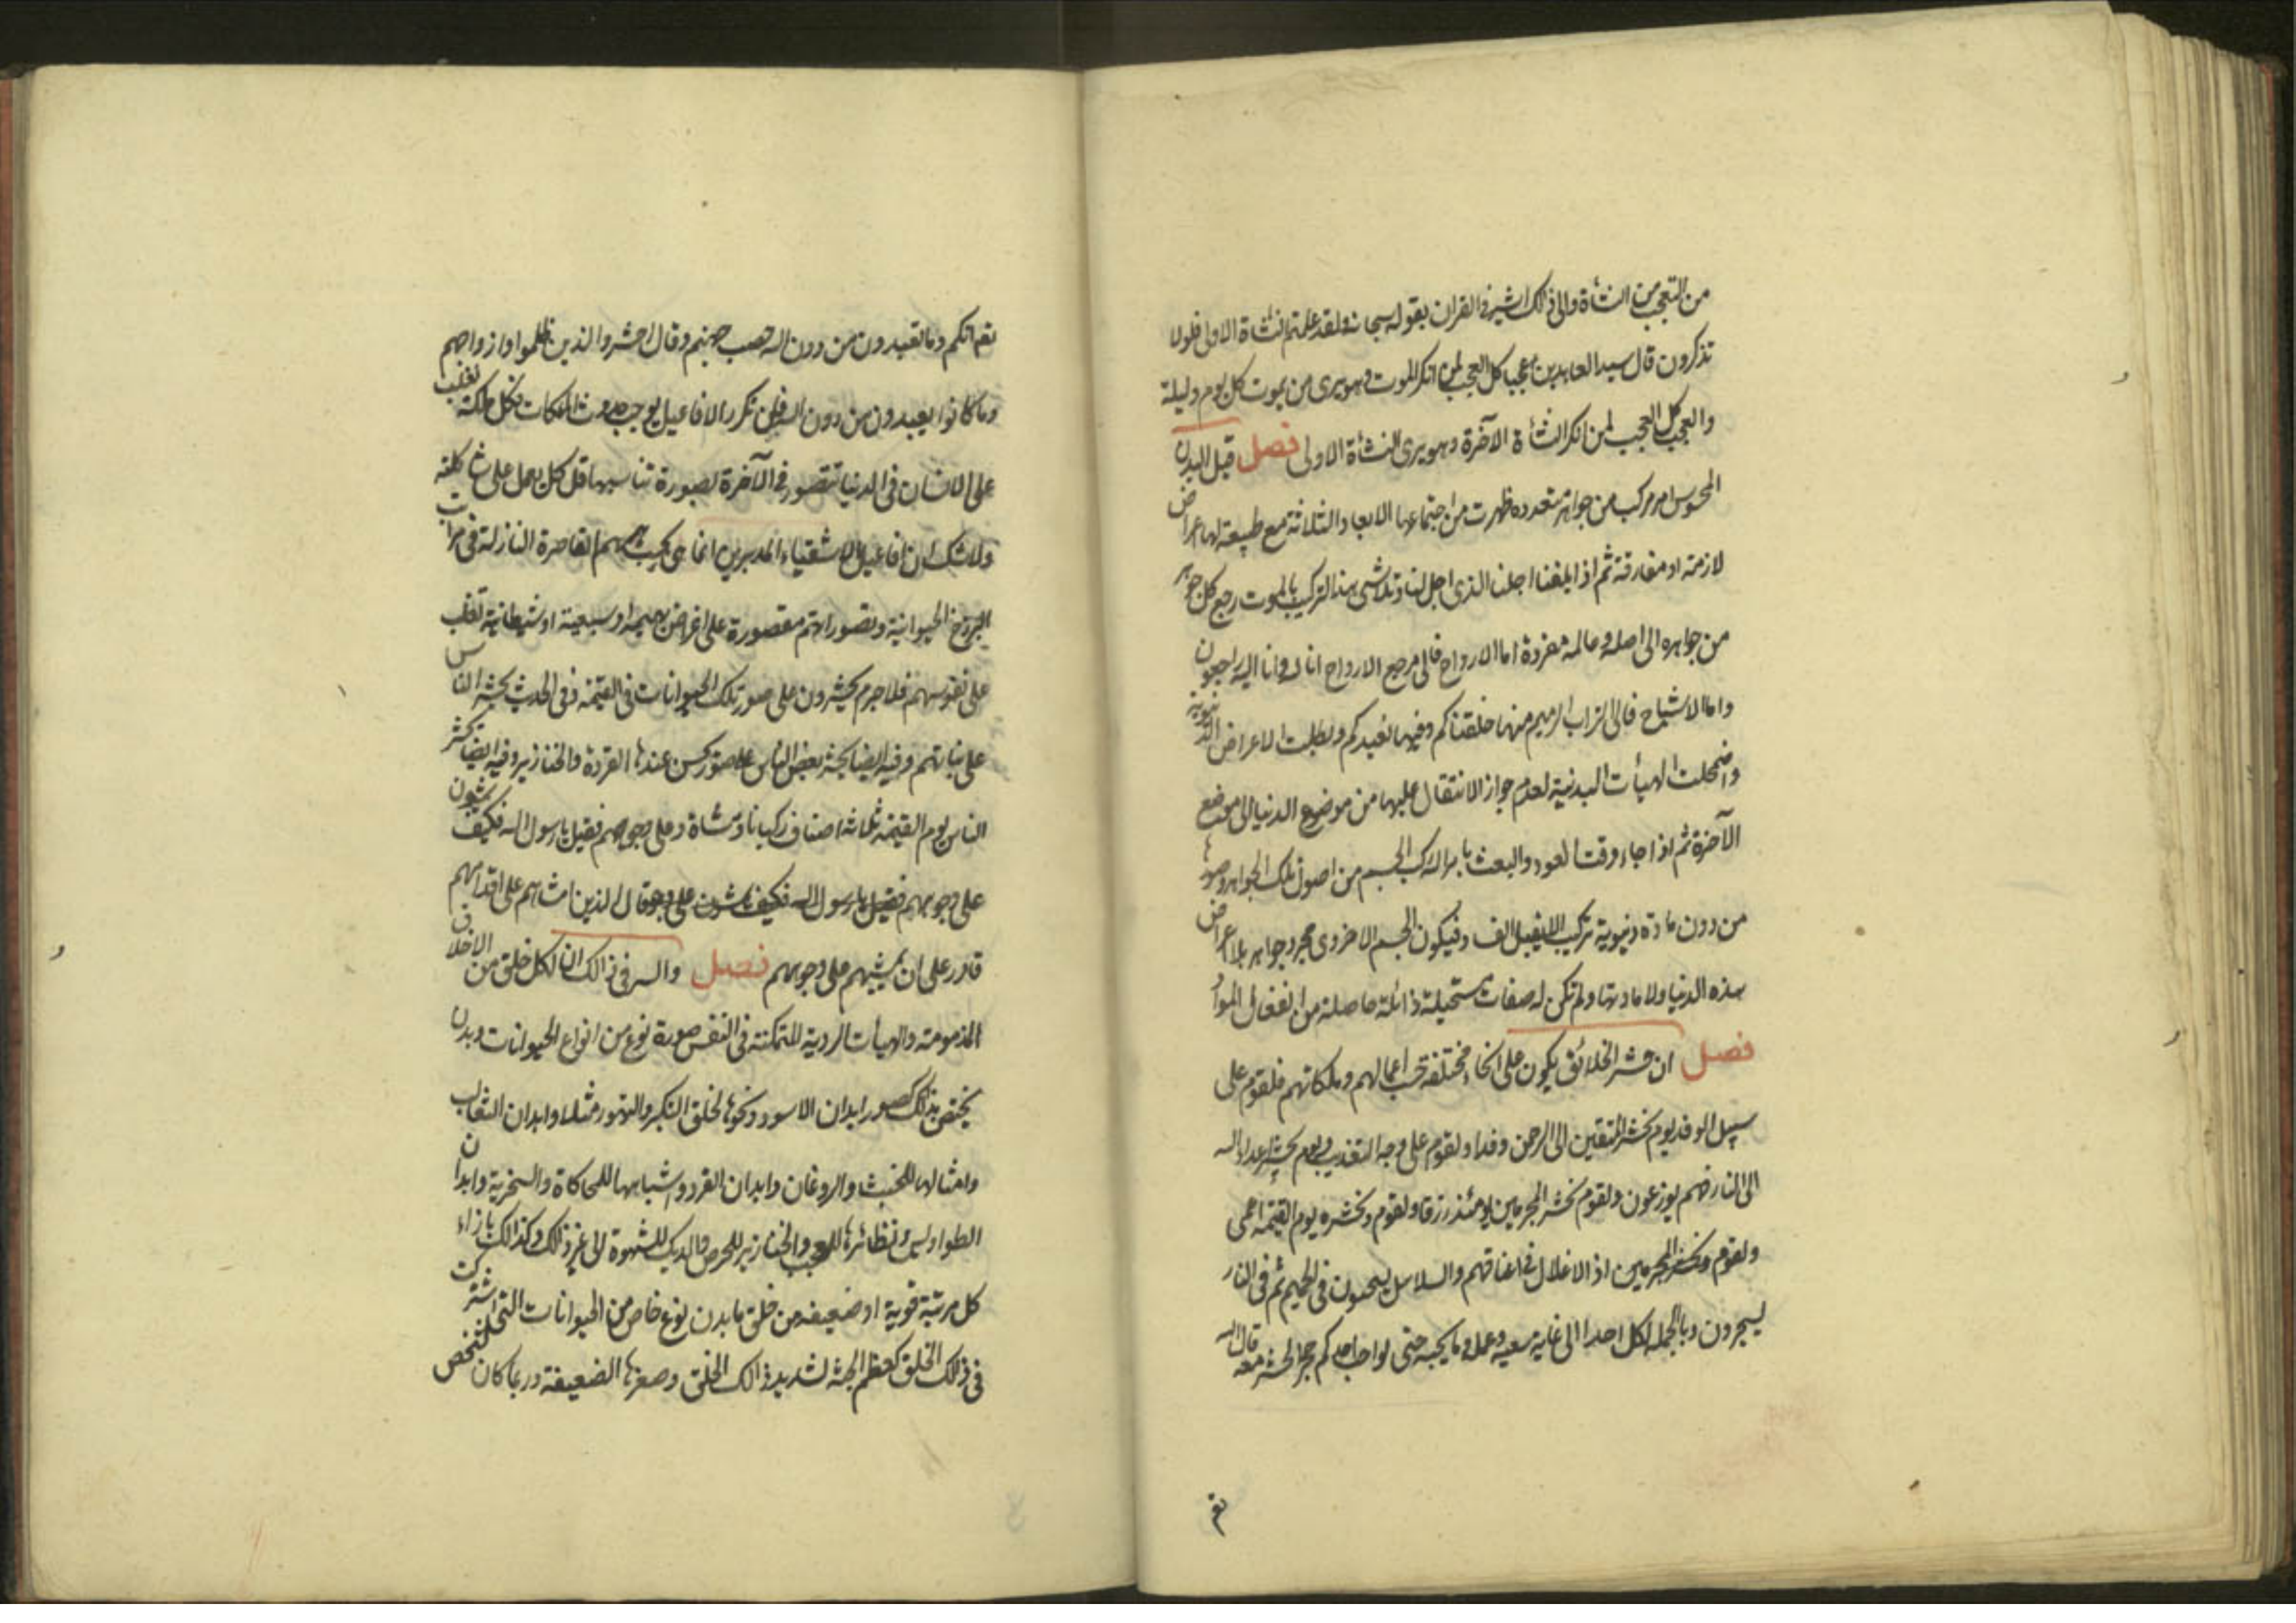 من التعجب من النشأة والى ذلك اشير فى القران بقوله سبحانه ولقد علمتم النشاة الاولى فلولا
تذكرون قال سيد العابدين عجبا كل العجب لمن انكر الموت وهو يرى من يموت كل يوم وليلة
والعجب كل العجب لمن انكر النشأة الآخرة وهو يرى النشأة الاولى فصل قيل البدن
المحسوس امر مركب من جواهر متعدده ظهرت من اجتماعها الابعاد الثلاثة مع طبيعة لها اعراض
لازمة او مفارقة ثم اذا بلغنا اجلنا الذى اجل لنا وتلاشى هذا التركيب بالموت رجع كل جوهر
من جواهره الى اصله وعالمه مفردة اما الارواح فالى مرجع الارواح انا لله وانا اليه راجعون
واما الاشباح فالى التراب الرميم منها خلقناكم وفيها نعيدكم وبطلت الاعراض الدنيوية
واضمحلت الهيأت البدنية لعدم جواز الانتقال عليها من موضوع الدنيا الى موضع
الآخرة ثم اذا جاء وقت العود والبعث بامر الله ركب الجسم من اصول تلك الجواهر وصورها
من دون مادة دنيوية تركيبا لا يقبل الفساد فيكون الجسم الاخروى مجرد جواهر بلا اعراض
هذه الدنيا ولا مادتها ولم تكن له صفات مستحيلة زائلة حاصلة من انفعال المواد
فصل ان حشر الخلائق يكون على انحاء مختلفة حسب اعمالهم وملكاتهم فلقوم على
سبيل الوفد يوم نحشر المتقين الى الرحمن وفدا ولقوم على وجه التعذيب ويوم يحشر اعداء الله
الى النار فهم يوزعون ولقوم نحشر المجرمين يومئذ زرقا ولقوم ونحشره يوم القيمة اعمى
ولقوم ونحشر المجرمين اذ الاغلال فى اعناقهم والسلاسل يسحبون فى الحميم ثم فى النار
يسجرون وبالجملة لكل احد الى غاية سعيه وعمله وما يحبه حتى لو احب احدكم حجرا لحشر معه قال الله
تعم
تعم انكم وما تعبدون من دون الله حصب جهنم وقال احشروا الذين ظلموا وازواجهم
وما كانوا يعبدون من دون الله فان تكرر الافاعيل يوجب حدوث الملكات فكل ملكة تغلب
على الانسان فى الدنيا تتصور فى الآخرة بصورة تناسبها قل كل يعمل على شاكلته
ولاشك ان افاعيل الاشقياء المدبرين انما هى بحسب هممهم القاصرة النازلة فى مراتب
البرزخ الحيوانية وتصوراتهم مقصورة على اغراض بهيمية او سبعية او شيطانية تغلب
على نفوسهم فلا جرم يحشرون على صور تلك الحيوانات فى القيمة وفى الحديث يحشر الناس
على نياتهم وفيه ايضا يحشر بعض الناس على صور يحسن عندها القردة والخنازير وفيه ايضا يحشر
الناس يوم القيمة ثلاثة اصناف ركبانا ومشاة وعلى وجوههم فقيل يا رسول الله فكيف يمشون
على وجوههم فقيل يا رسول الله فكيف يمشون على وجوه قال الذين امشاهم على اقدامهم
قادر على ان يمشيهم على وجوههم فصل والسر فى ذالك ان لكل خلق من الاخلاق
المذمومة والهيأت الردية المتمكنة فى النفس صورة نوع من انواع الحيوانات وبدن
يختص بذلك كصور ابدان الاسود ونحوها لخلق التكبر والتهور مثلا وابدان الثعالب
وامثالها للخبث والروغان وابدان القرد واشباهها للمحاكاة والسخرية وابدان
الطواويس ونظائرها للعجب والخنازير للحرص والديك للشهوة الى غير ذلك وكذالك بازاء
كل مرتبة قوية او ضعيفة من خلق ما بدن نوع خاص من الحيوانات التى اشتركت
فى ذلك الخلق كعظم الجثة لشديد ذالك الخلق وصغرها الضعيفة وربما كان لشخص